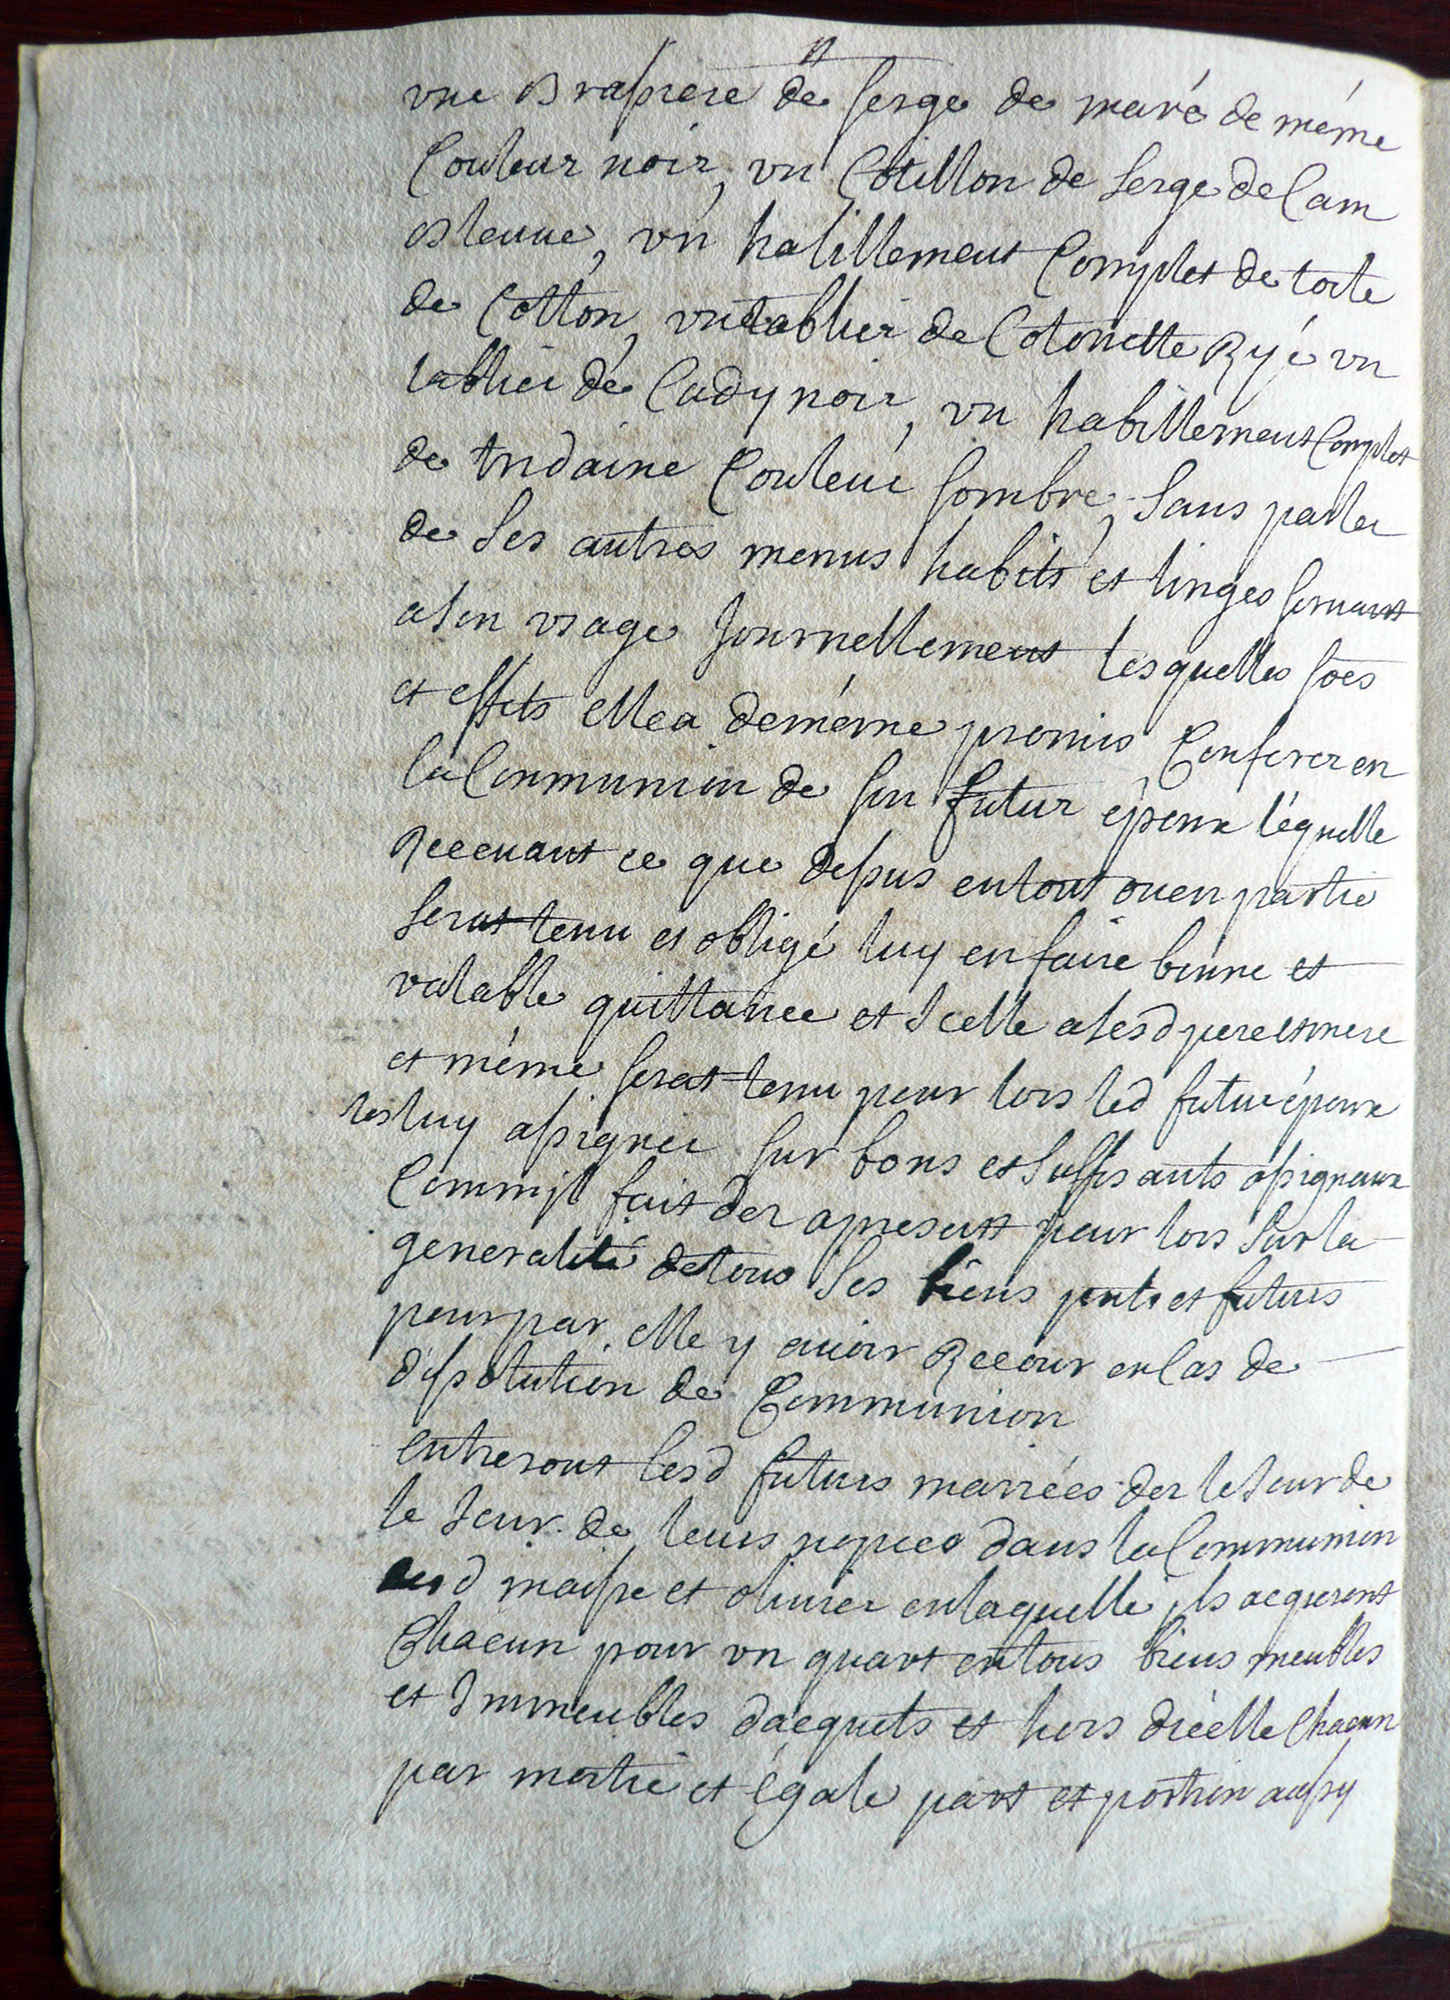 vne Brassiere de serge de maré de méme
Couleur noir, vn Cotillon de serge de Cam
bleuue, vn habillement Complet de toile
de Cotton, vn tablier de Cotonette Ryé vn
tablier de Cady noir, vn habillement Complet
de tridaine Couleur sombre, sans parler
de ses autres menus habits et linges seruant
a son vsage Journellement lesquelles soes
et effets elle a de méme promis Conferer en
la Communion de son futur époux léquelle
Receuant ce que dessus en tout ou en partie
serat tenu et obligé luy en faire bonne et
valable quittance et Icelle a sesd pere et mere
et méme serat tenu pour lors led futur époux
les luy assigner sur bons et suffisants assignaux
Comm'jl fait dez apresent pour lors sur la
generalité de tous ses biens pnts et futurs
pour par elle y auoir Recour en Cas de
dissolution de Communion
Entreront lesd futurs mariées dez le Jour de
le Jour de leurs nopces dans la Communion
desd maisre et oliuier en laquelle ils acquerent
Chacun pour vn quart en tous biens meubles
et Immeubles dacquets et hors d'icelle Chacun
par moitié et Egale part et portion aussy